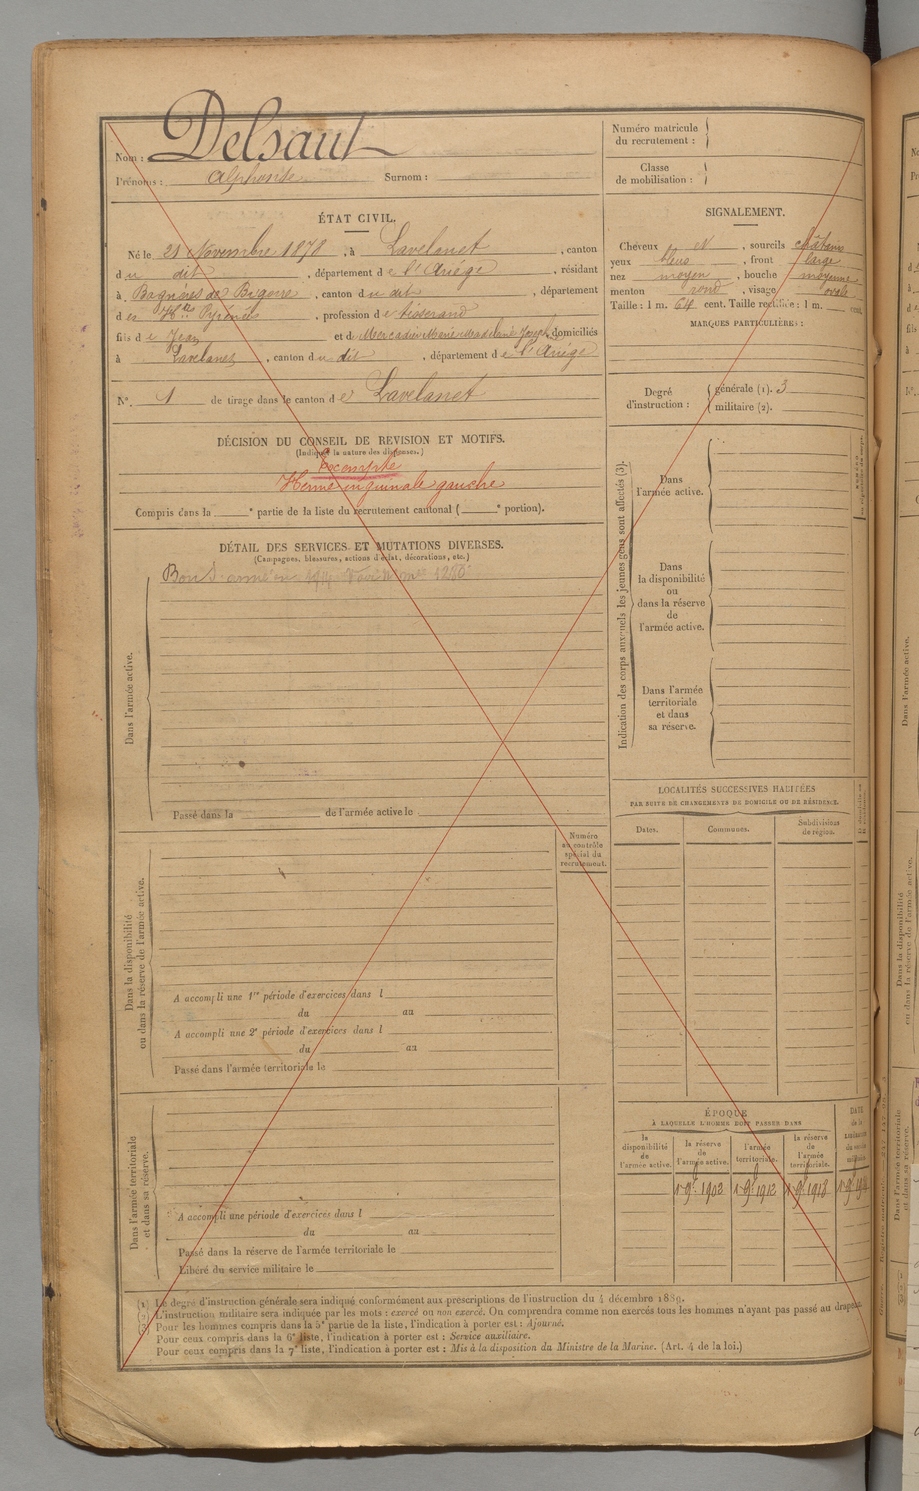 Nom : Delsaut
Prénoms : Alphonse Surnom :
Numéro matricule
du recrutement :
Classe
de mobilisation :
ÉTAT CIVIL.
Né le 21 Novembre 1878, à Lavelanet, canton
du dit, département de l'Ariége, résidant
à Bagnères de Bigorre, canton du dit, département
des Htes Pyrénées, profession de tisserand
fils de Jean et de Mercadier Marie Madeleine Joseph, domiciliés
à Lavelanet, canton du dit, département de l'Ariége
N° 1 de tirage dans le canton de Lavelanet
SIGNALEMENT.
Cheveux N, sourcils châtains
yeux bleus, front large
nez moyen, bouche moyenne
menton rond, visage ovale
Taille : 1 m. 64 cent. Taille rectifiée : 1 m. cent.
MARQUES PARTICULIÈRES :
Degré
d'instruction :
générale (1). 3
militaire (2).
DÉCISION DU CONSEIL DE REVISION ET MOTIFS.
(Indiquer la nature des dispenses.)
Exempté
Hernie inguinale gauche
Compris dans la e partie de la liste du recrutement cantonal ( e portion).
DÉTAIL DES SERVICES ET MUTATIONS DIVERSES.
(Campagnes, blessures, actions d'éclat, décorations, etc.)
Bon S. armé en 1914
Dans l'armée active.
Passé dans la de l'armée active le
Indication des corps auxquels les jeunes gens sont affectés (3).
Dans
l'armée active.
Dans
la disponibilité
ou
dans la réserve
de
l'armée active.
Dans l'armée
territoriale
et dans
sa réserve.
LOCALITÉS SUCCESSIVES HABITÉES
PAR SUITE DE CHANGEMENTS DE DOMICILE OU DE RÉSIDENCE.
Dates. Communes. Subdivisions
de région.
Numéro
au contrôle
spécial du
recrutement.
Dans la disponibilité
ou dans la réserve de l'armée active.
A accompli une 1re période d'exercices dans l
du au
A accompli une 2e période d'exercices dans l
du au
Passé dans l'armée territoriale le
ÉPOQUE
À LAQUELLE L'HOMME DOIT PASSER DANS
la
disponibilité
de
l'armée active.
la réserve
de
l'armée active.
l'armée
territoriale.
la réserve
de
l'armée
territoriale.
DATE
de la
1 9bre 1902 1 9bre 1912 1 9bre 1918
Dans l'armée territoriale
et dans sa réserve.
A accompli une période d'exercices dans l
du au
Passé dans la réserve de l'armée territoriale le
Libéré du service militaire le
(1) Le degré d'instruction générale sera indiqué conformément aux prescriptions de l'instruction du 4 décembre 1889.
(2) L'instruction militaire sera indiquée par les mots : exercé ou non exercé. On comprendra comme non exercés tous les hommes n'ayant pas passé au drapeau.
(3) Pour les hommes compris dans la 5e partie de la liste, l'indication à porter est : Ajourné.
Pour ceux compris dans la 6e liste, l'indication à porter est : Service auxiliaire.
Pour ceux compris dans la 7e liste, l'indication à porter est : Mis à la disposition du Ministre de la Marine. (Art. 4 de la loi.)